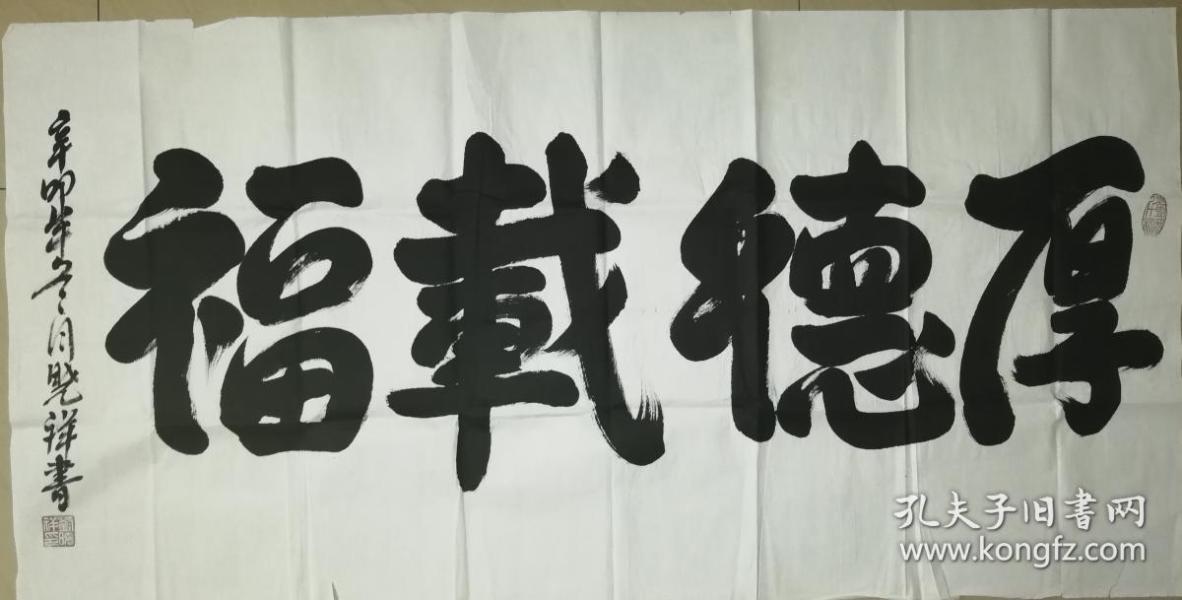 厚德載福
辛卯年冬月曉祥書
孔夫子旧书网
www.kongfz.com